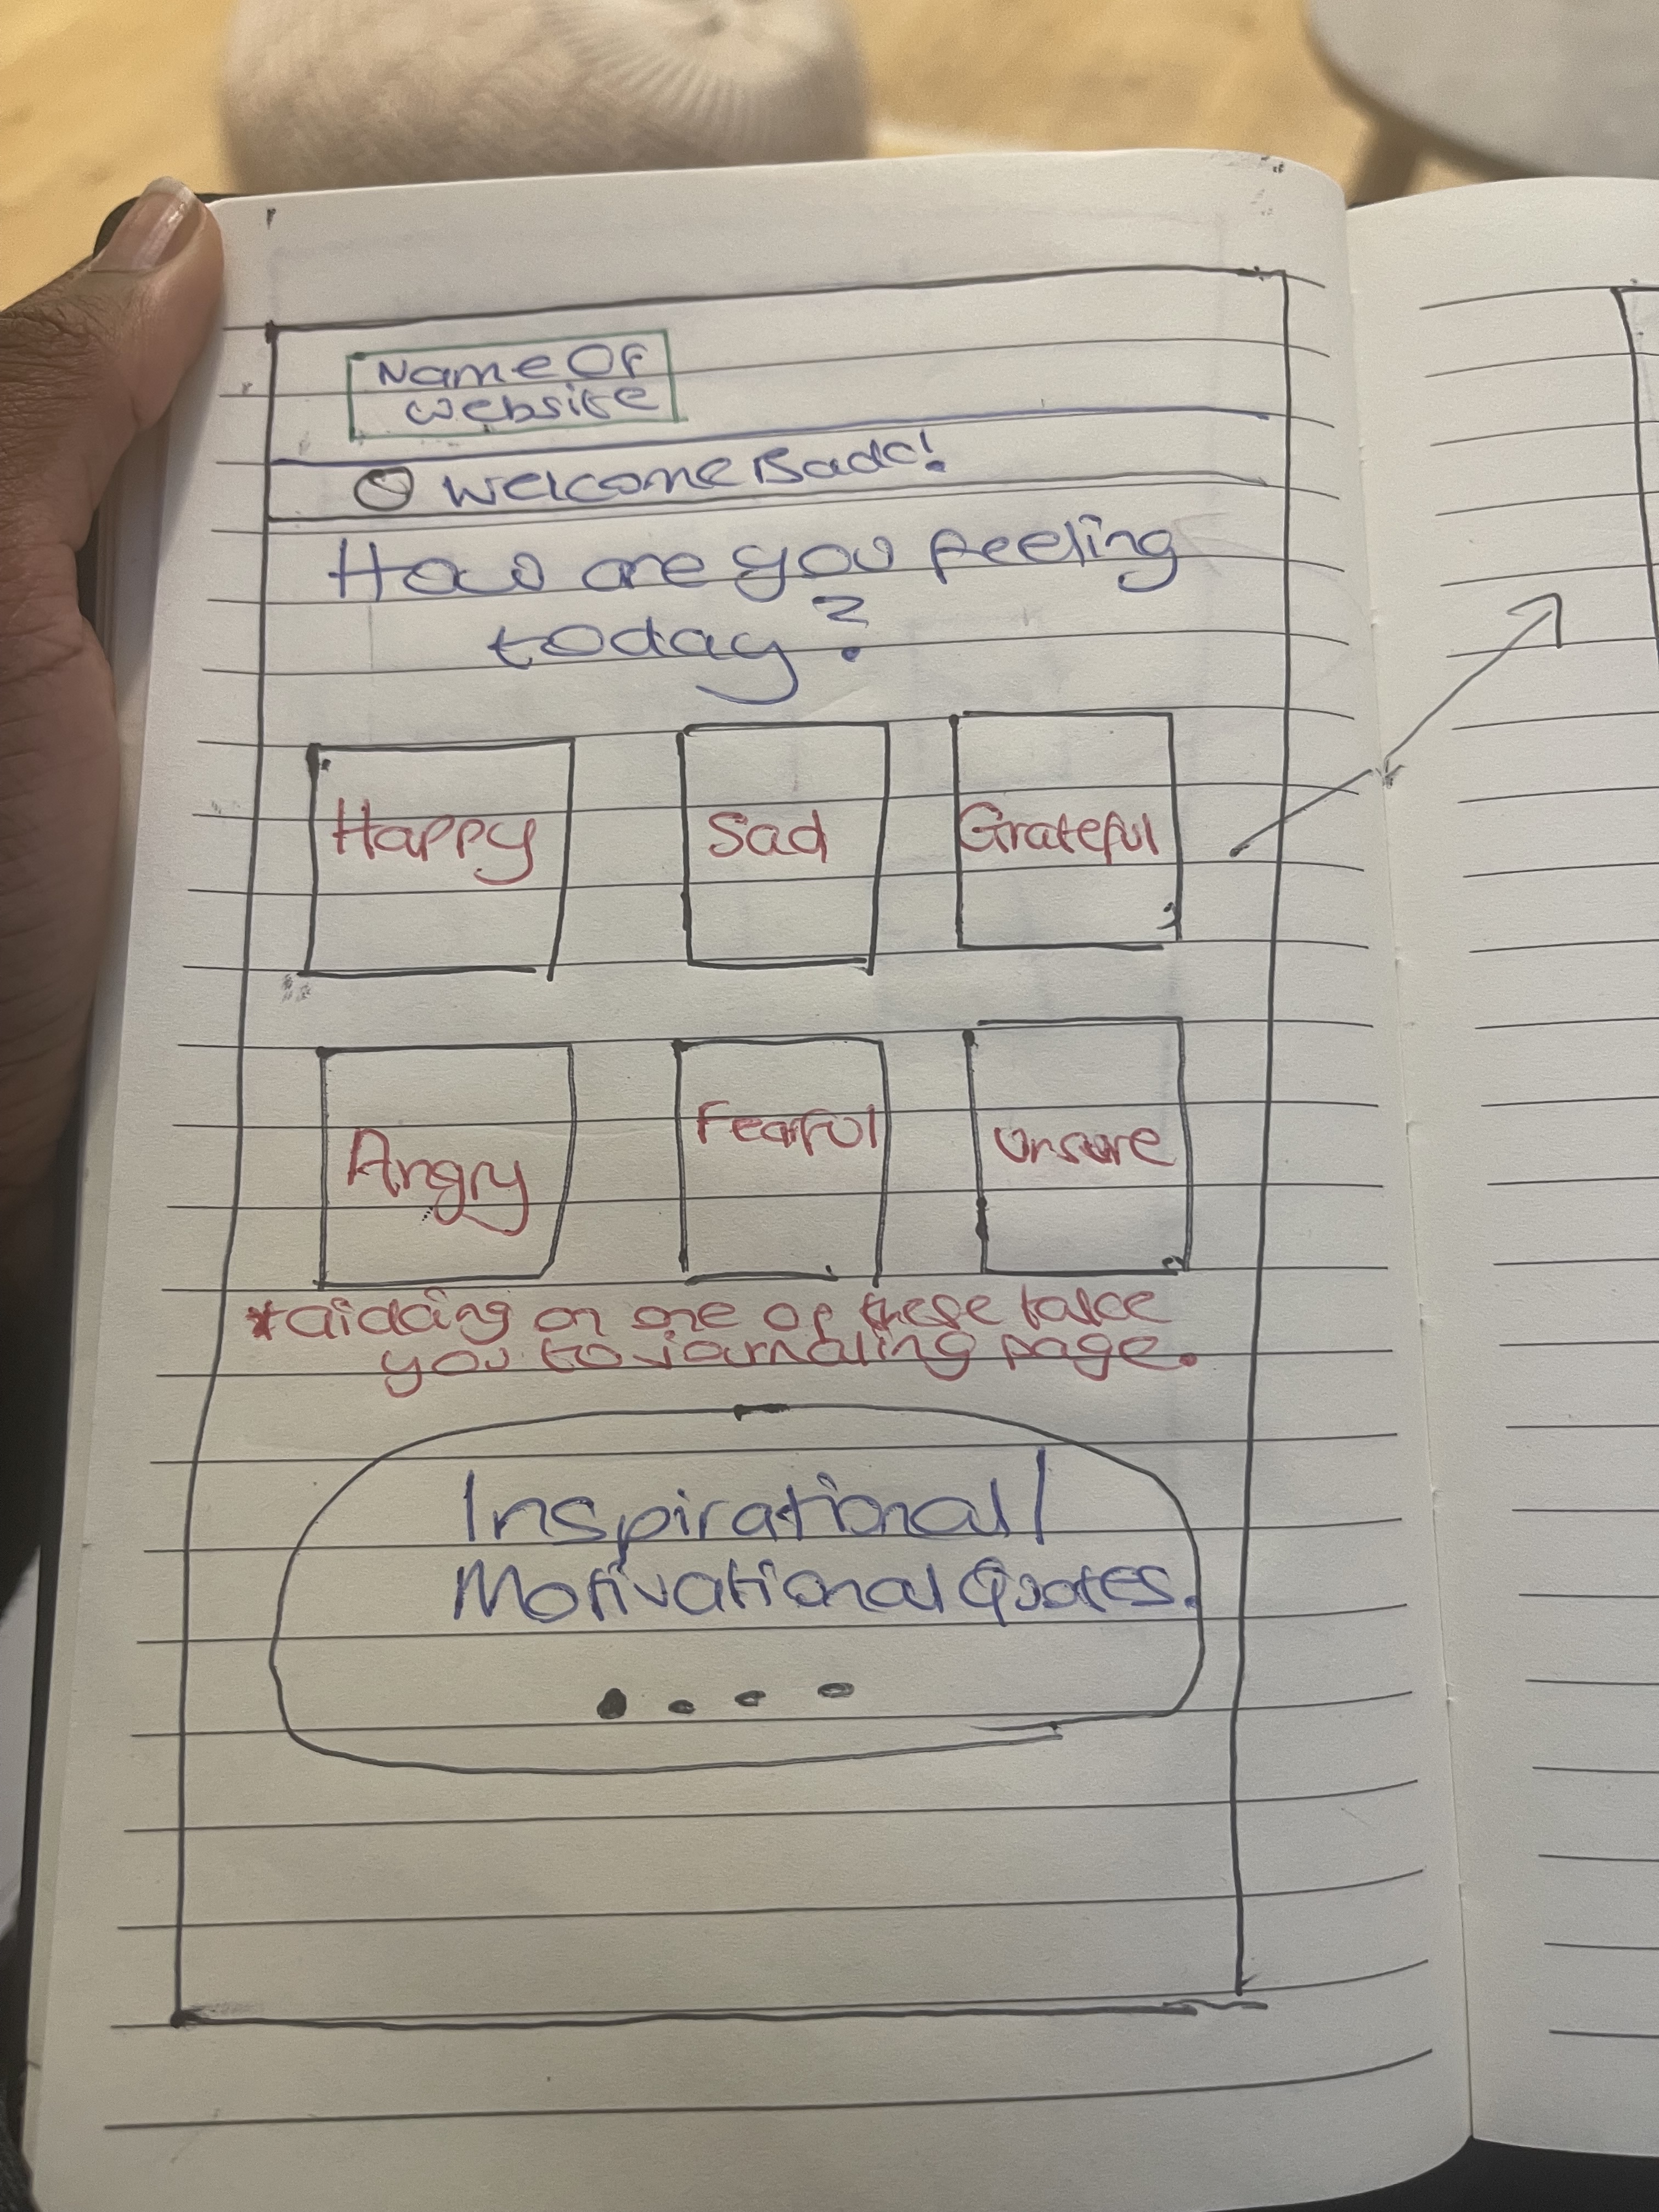 Name Of
website
Welcome Back!
How are you feeling
today?
Happy
Sad
Grateful
Angry
Fearful
Unsure
*clicking on one of these take
you to journaling page.
Inspirational/
Motivational Quotes.